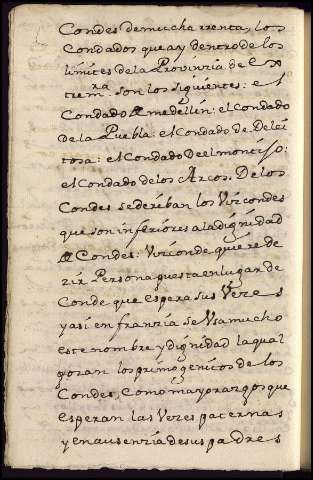 Condes de mucha rrenta, los
Condados que ay dentro de los
limites de la Provinzia de Ex
trem.ra son los siguientes: el
Condado de medellin: el Condado
De la Puebla: el Condado de Delei
tosa: el Condado De el montijo:
el Condado de los Arcos. De los
Condes se deriban los Vizcondes
que son inferiores a la dignidad
de Condes: Vizconde quiere de
zir Persona puesta en lugar de
Conde que espera sus Vezes
y asi en franzia se Vsa mucho
este nombre y dignidad la qual
gozan los primogenitos de los
Condes, Como mayorazgos que
esperan las Vezes paternas
y en ausenzia de sus padres